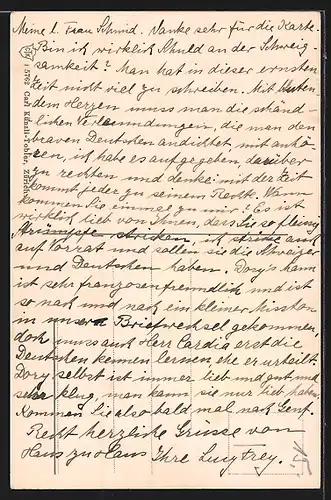 Meine l. Frau Schmid. Danke sehr für die Karte.
Bin ich wirklich Schuld an der Schweig-
samkeit? Man hat in dieser ernsten
Zeit nicht viel zu schreiben. Mit bluten-
dem Herzen muss man die schänd-
lichen Verleumdungen, die man den
braven Deutschen andichtet, mit anhö-
ren, ich habe es aufgegeben, darüber
zu rechten und denke: mit der Zeit
kommt jeder zu seinem Recht. Wann
kommen Sie einmal zu mir? Es ist
wirklich lieb von Ihnen, dass Sie so fleissig
Strümpfe stricken, ich stricke auch
auf Vorrat und sollen sie die Schweizer
und Deutschen haben. Dory's Mann
ist sehr franzosenfreundlich und ist
so nach und nach ein kleiner Misston
in unsern Briefwechsel gekommen,
doch muss auch Herr Cardia erst die
Deutschen kennen lernen, ehe er urteilt.
Dory selbst ist immer lieb und gut und
sehr klug, man kann sie nur lieb haben.
Kommen Sie also bald mal nach Genf.
Recht herzliche Grüsse von
Haus zu Haus Ihre Lucy Frey.
5769 Carl Künzli-Tobler, Zürich